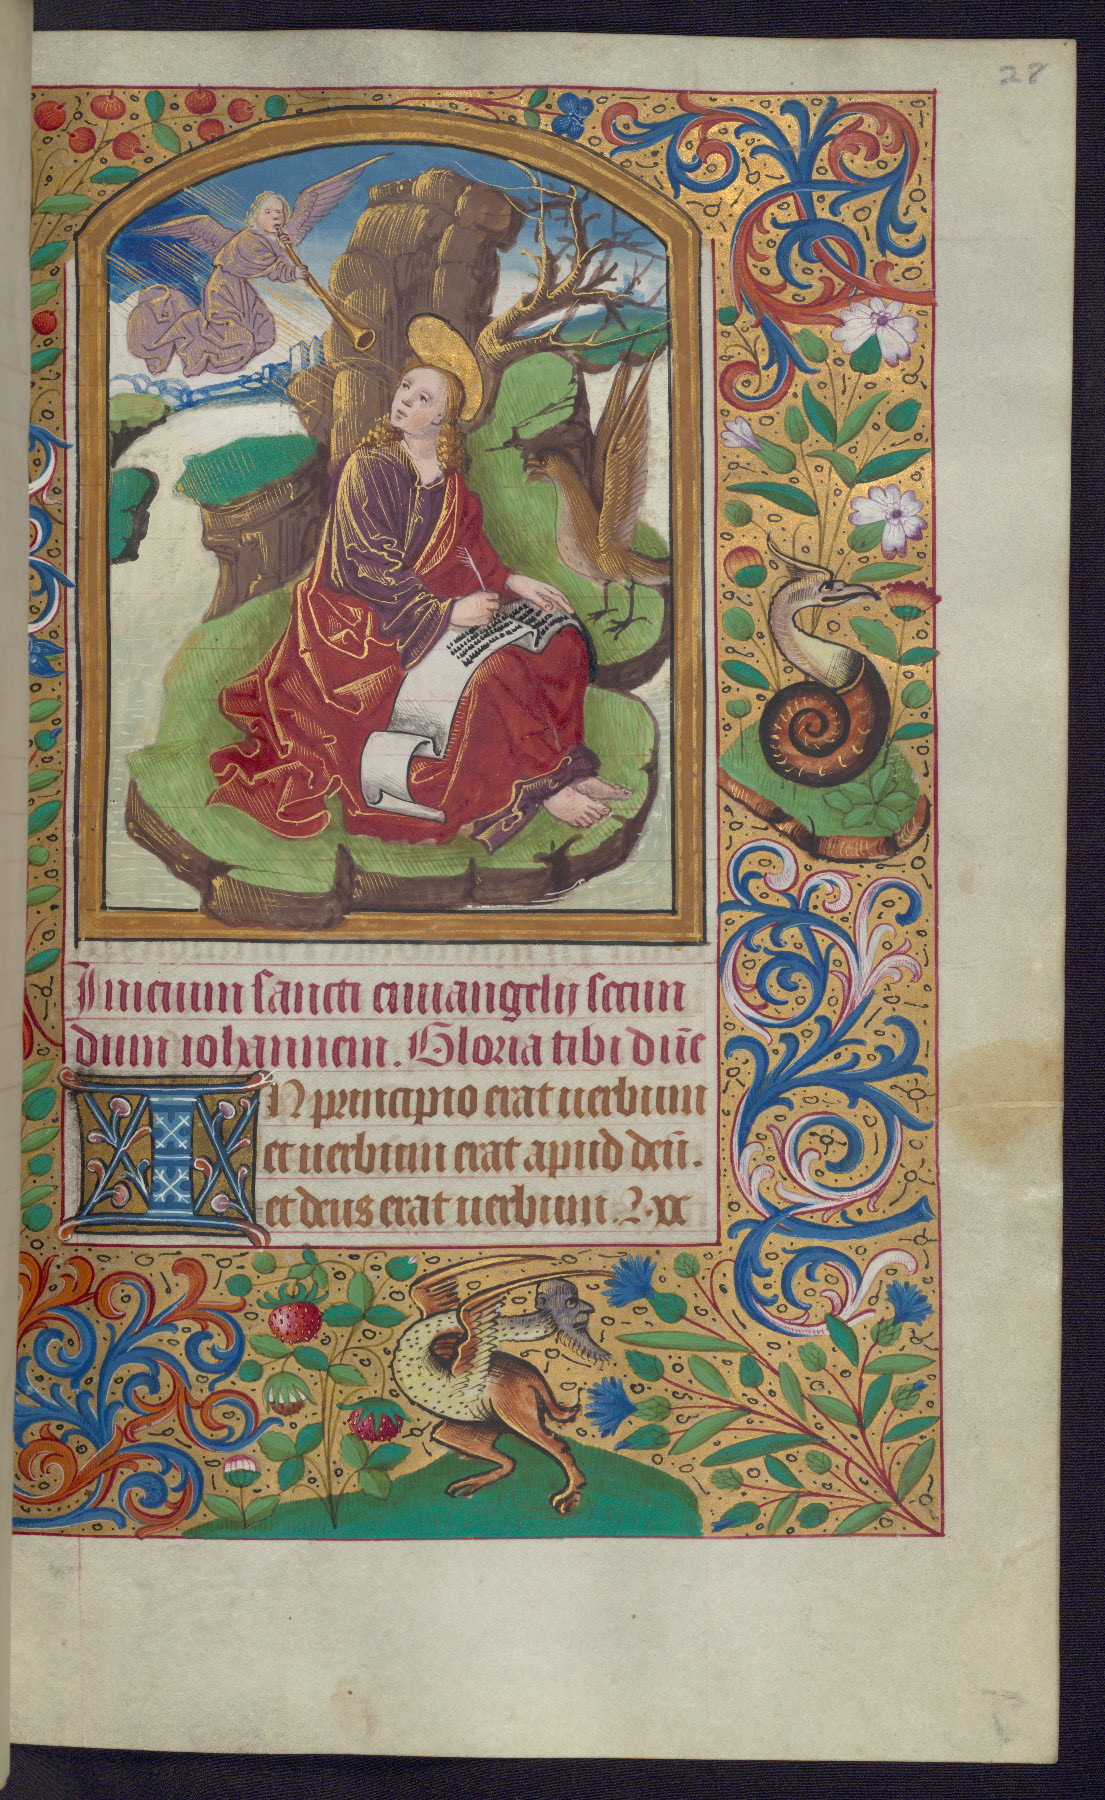 28
Inicium sancti euuangelij secun
dum iohannem. Gloria tibi dñe
IN principio erat uerbum
et uerbum erat apud deū.
et deus erat uerbum. 2. xc